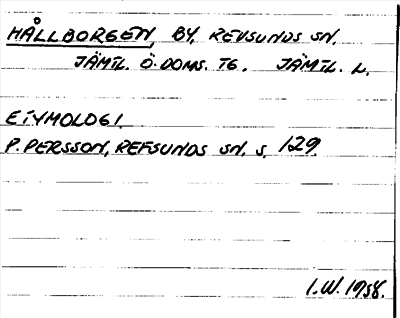 HÅLLBORGEN, BY, REVSUNDS SN.
JÄMTL. Ö. DOMS. TG. JÄMTL. L.
ETYMOLOGI.
P. PERSSON, REFSUNDS SN. S. 129.
I.W. 1958.